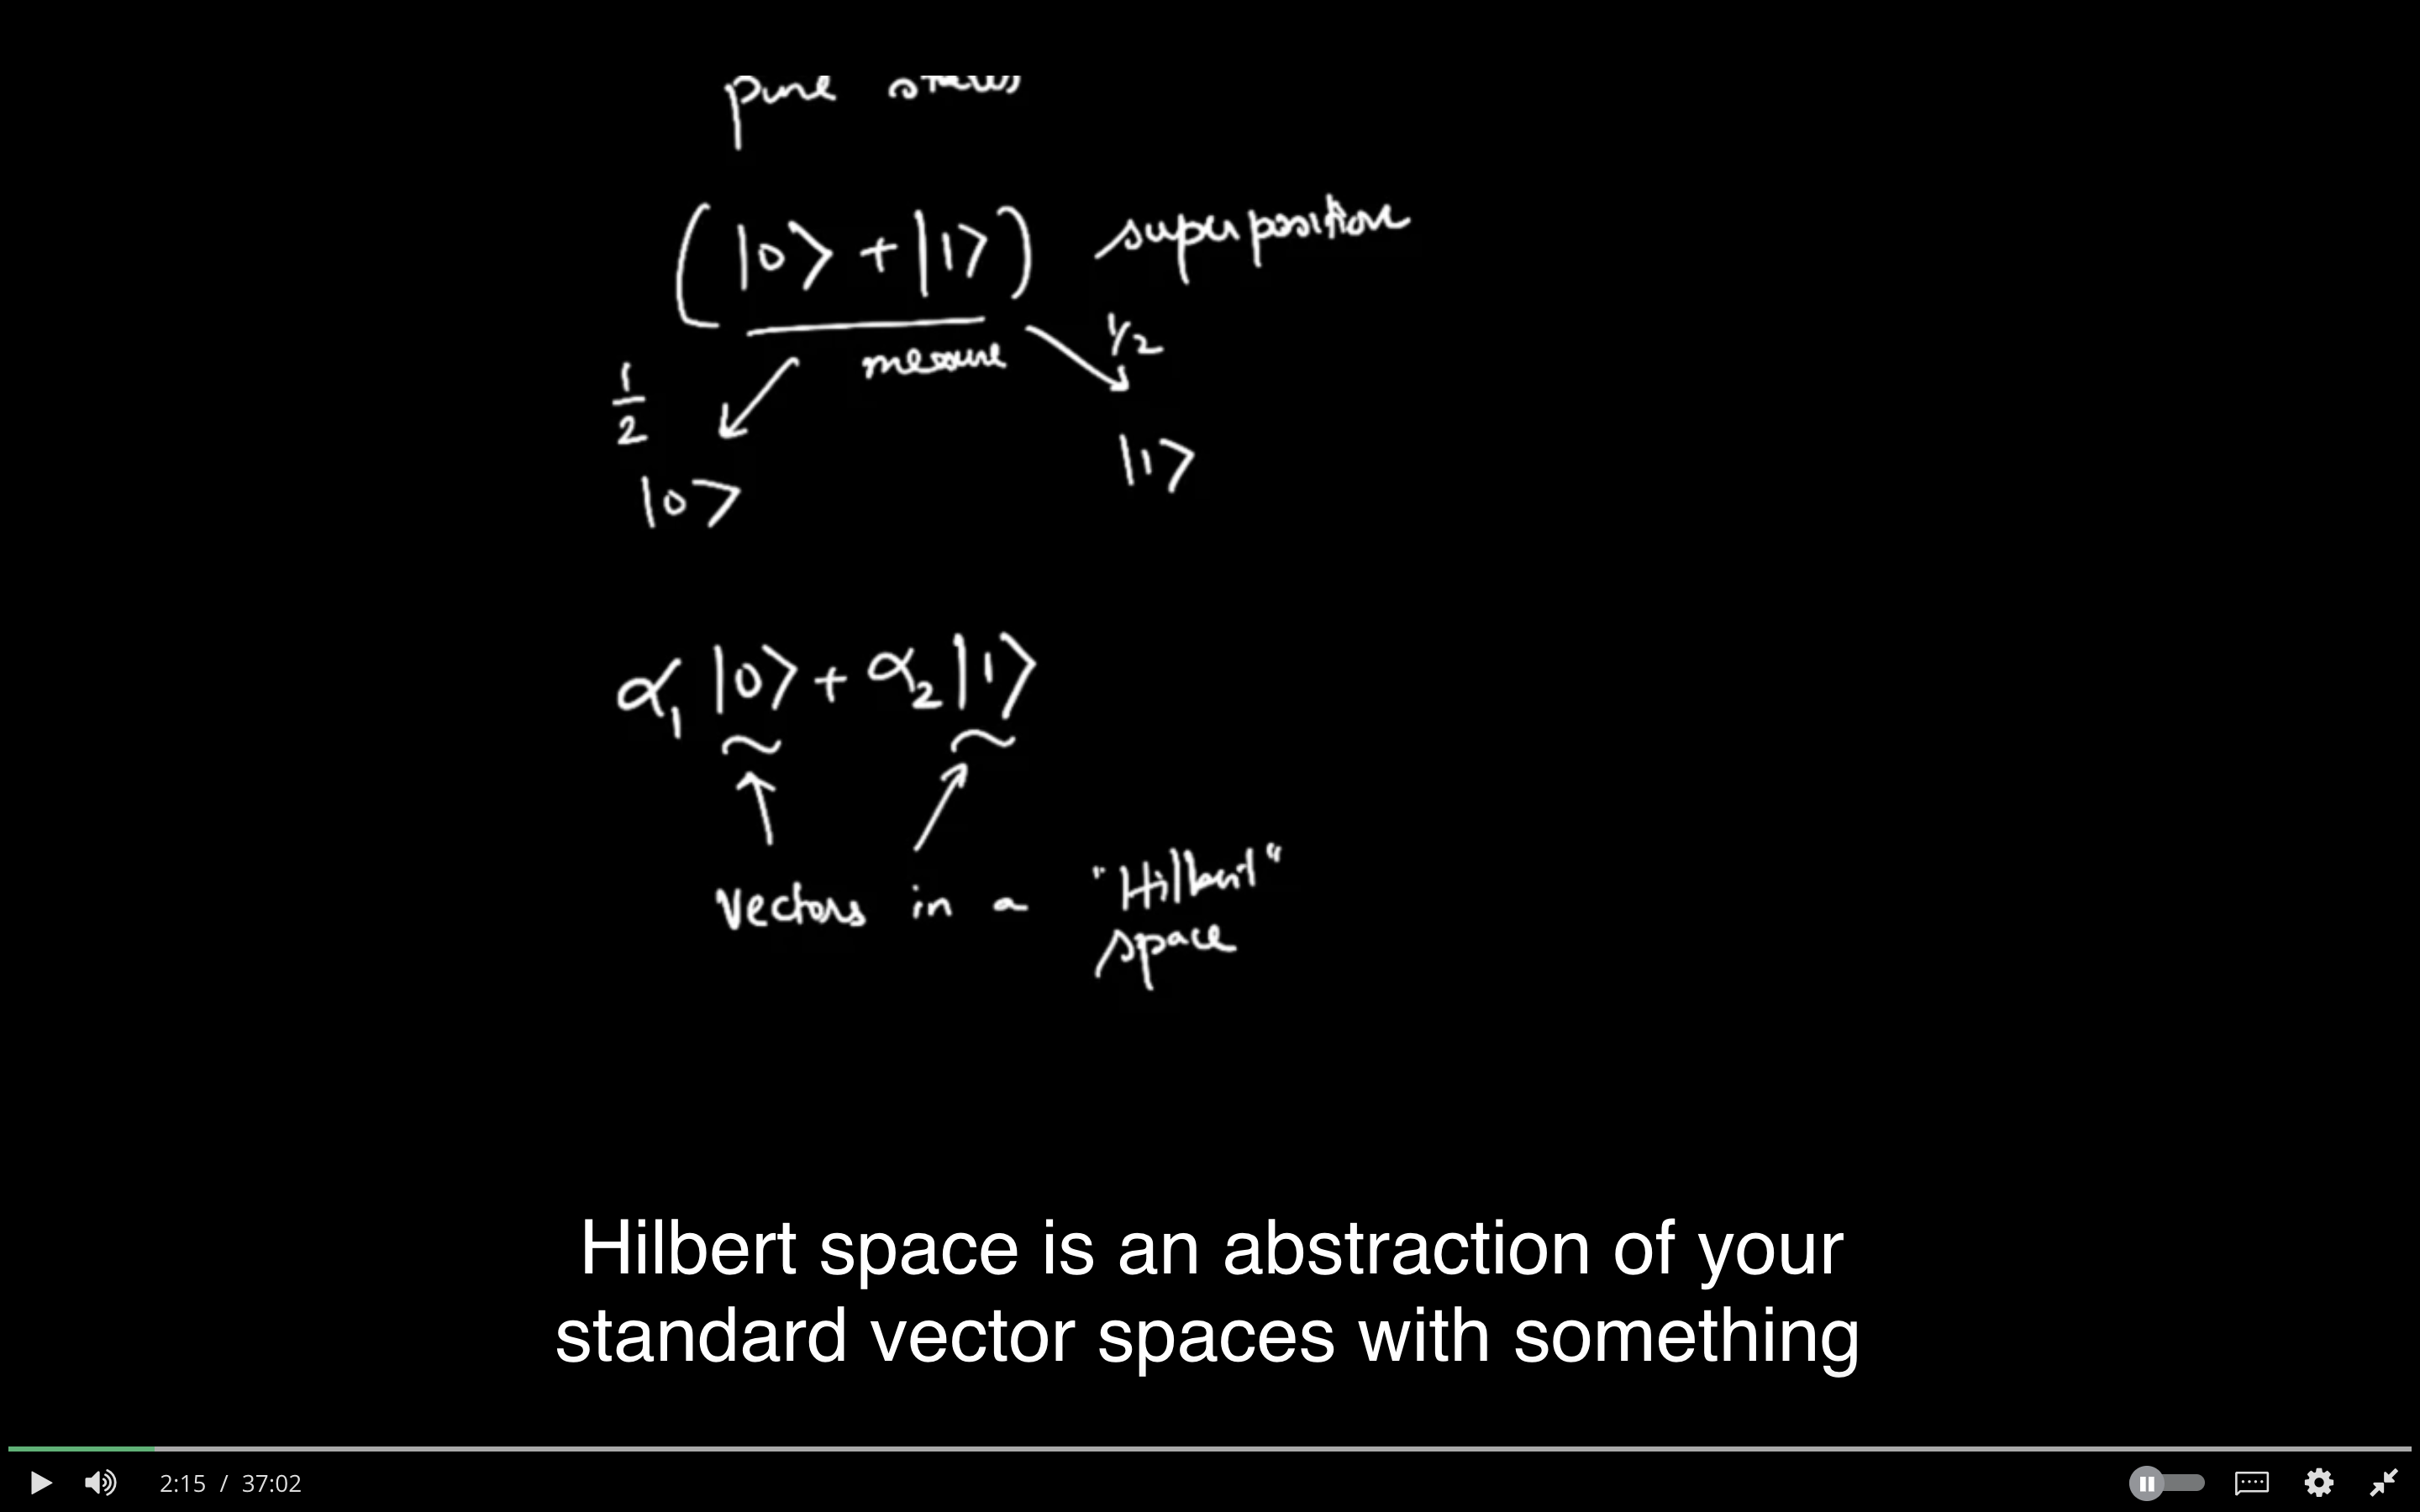 pure states
(|0⟩ + |1⟩) superposition
measure
1/2
1/2
|0⟩
|1⟩
α₁ |0⟩ + α₂ |1⟩
Vectors in a "Hilbert"
space
Hilbert space is an abstraction of your
standard vector spaces with something
2:15 / 37:02